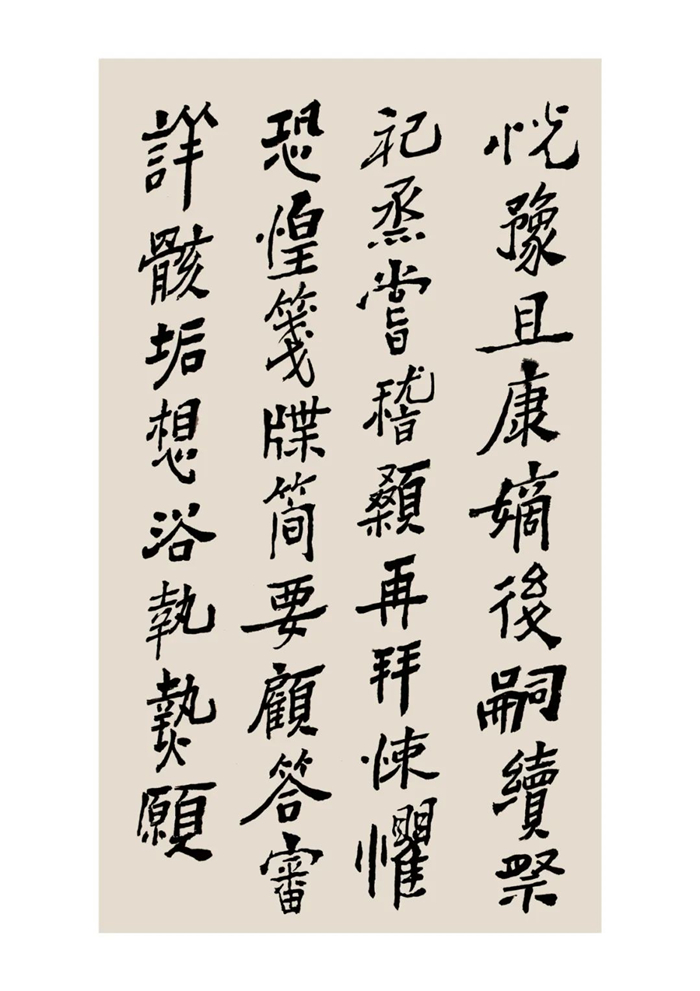 悦豫且康嫡後嗣續祭
祀烝嘗稽顙再拜悚懼
恐惶箋牒简要顧答審
詳骸垢想浴執熱願